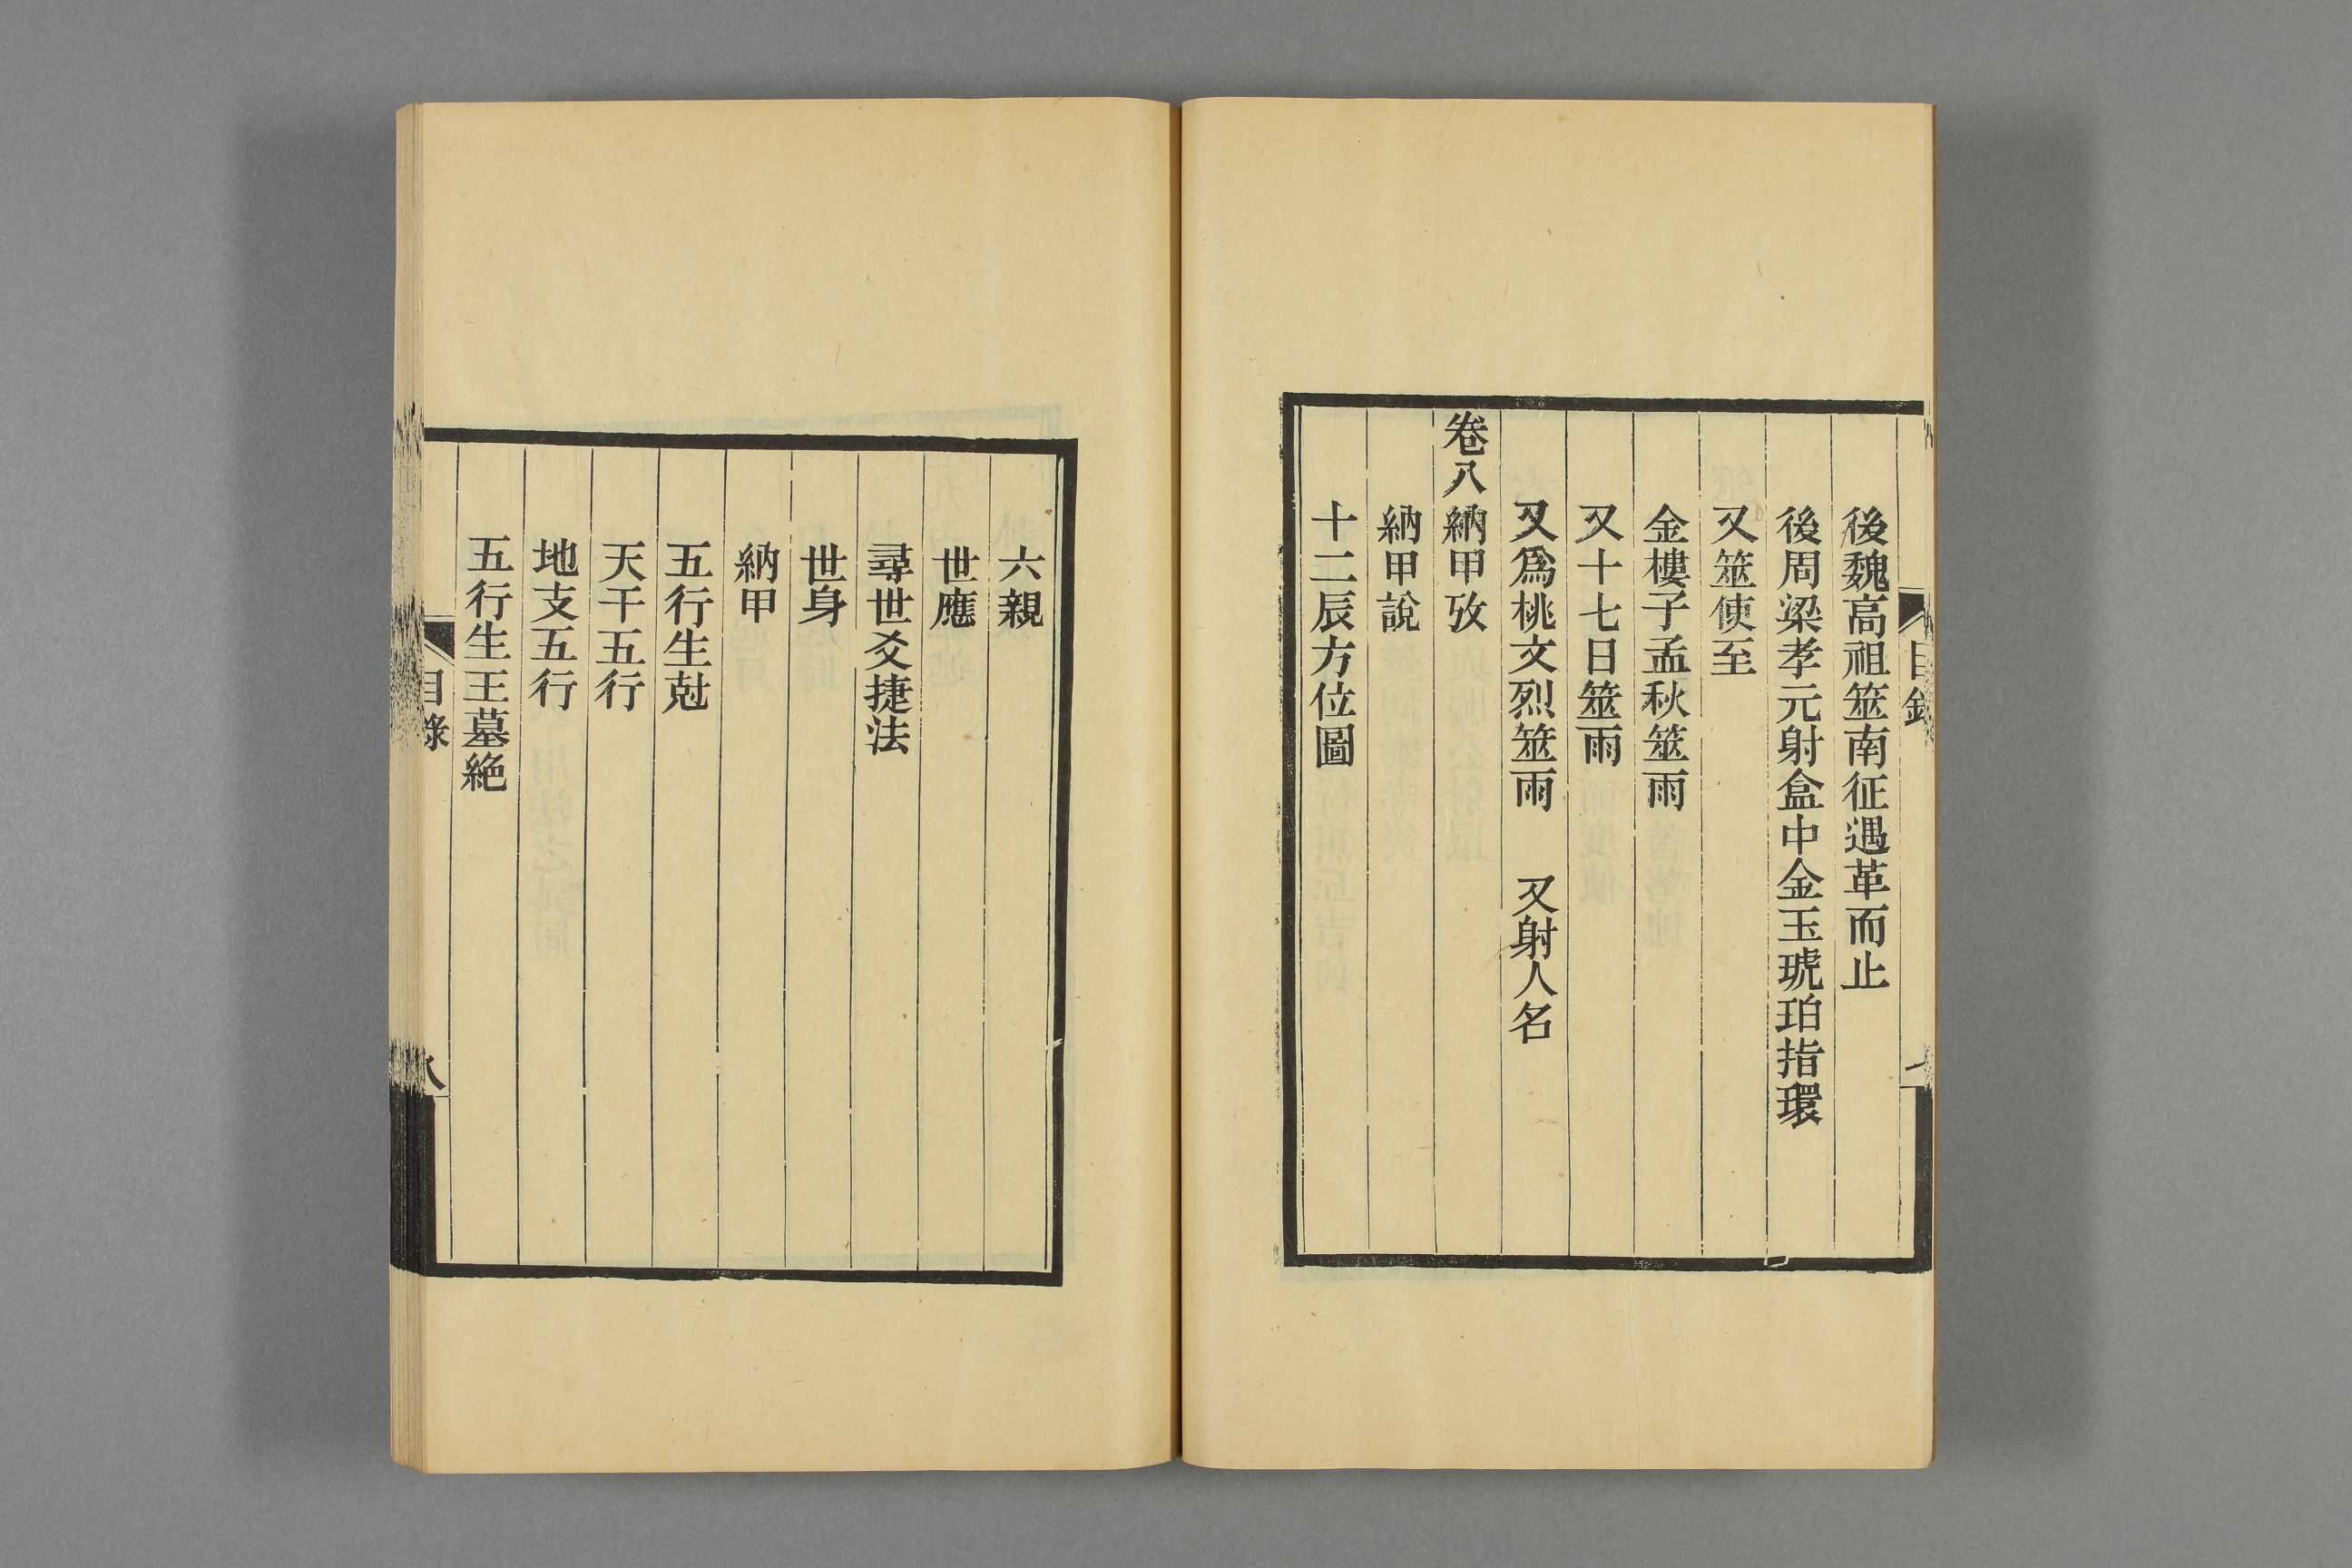 後魏高祖筮南征遇革而止
後周梁孝元射盒中金玉琥珀指環
又筮使至
金樓子孟秋筮雨
又十七日筮雨
又爲桃文烈筮雨　又射人名
卷八納甲攷
納甲說
十二辰方位圖
六親
世應
尋世爻捷法
世身
納甲
五行生尅
天干五行
地支五行
五行生王墓絶
目錄
八